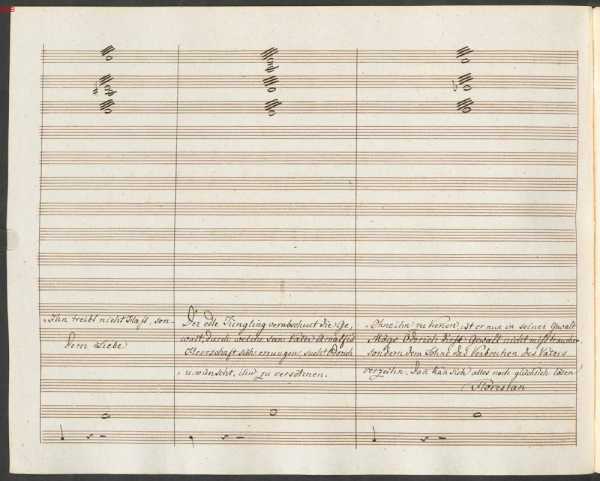 Ihn treibt nicht Haß, son-
dern Liebe
Der edle Jüngling verabscheut die Ge-
walt, durch welche sein Vater
Oberherrschaft sich errungen, sucht
u. wünscht, ihn zu versöhnen.
Ohne ihn zu kennen, ist er nun in seiner Gewalt
Möge Oderich diese Gewalt nicht mißbrauchen
sondern dem Sohne das Verbrechen des Vaters
verzeihn, dan kan sich alles noch glücklich lösen
Florestan